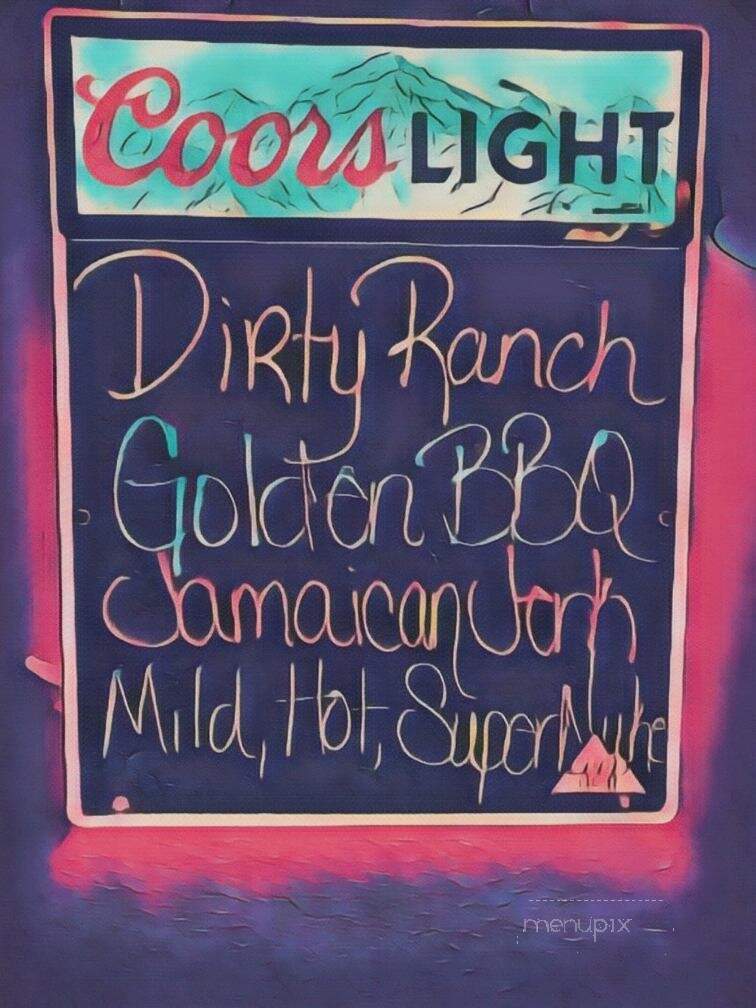 Coors LIGHT
Dirty Ranch
Golden BBQ
Jamaican Jerk
Mild, Hot, Super Nuke
menupix